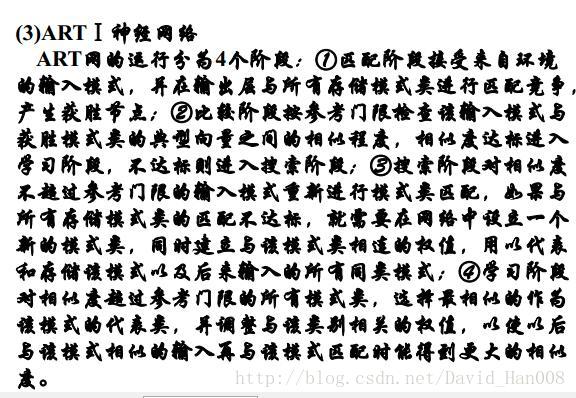 (3)ARTⅠ神经网络
ART网的运行分为4个阶段：①匹配阶段接受来自环境
的输入模式，并在输出层与所有存储模式类进行匹配竞争，
产生获胜节点；②比较阶段按参考门限检查该输入模式与
获胜模式类的典型向量之间的相似程度，相似度达标进入
学习阶段，不达标则进入搜索阶段；③搜索阶段对相似度
不超过参考门限的输入模式重新进行模式类匹配，如果与
所有存储模式类的匹配不达标，就需要在网络中设立一个
新的模式类，同时建立与该模式类相连的权值，用以代表
和存储该模式以及后来输入的所有同类模式；④学习阶段
对相似度超过参考门限的所有模式类，选择最相似的作为
该模式的代表类，并调整与该类别相关的权值，以使以后
与该模式相似的输入再与该模式匹配时能得到更大的相似
度。
http://blog.csdn.net/David_Han008